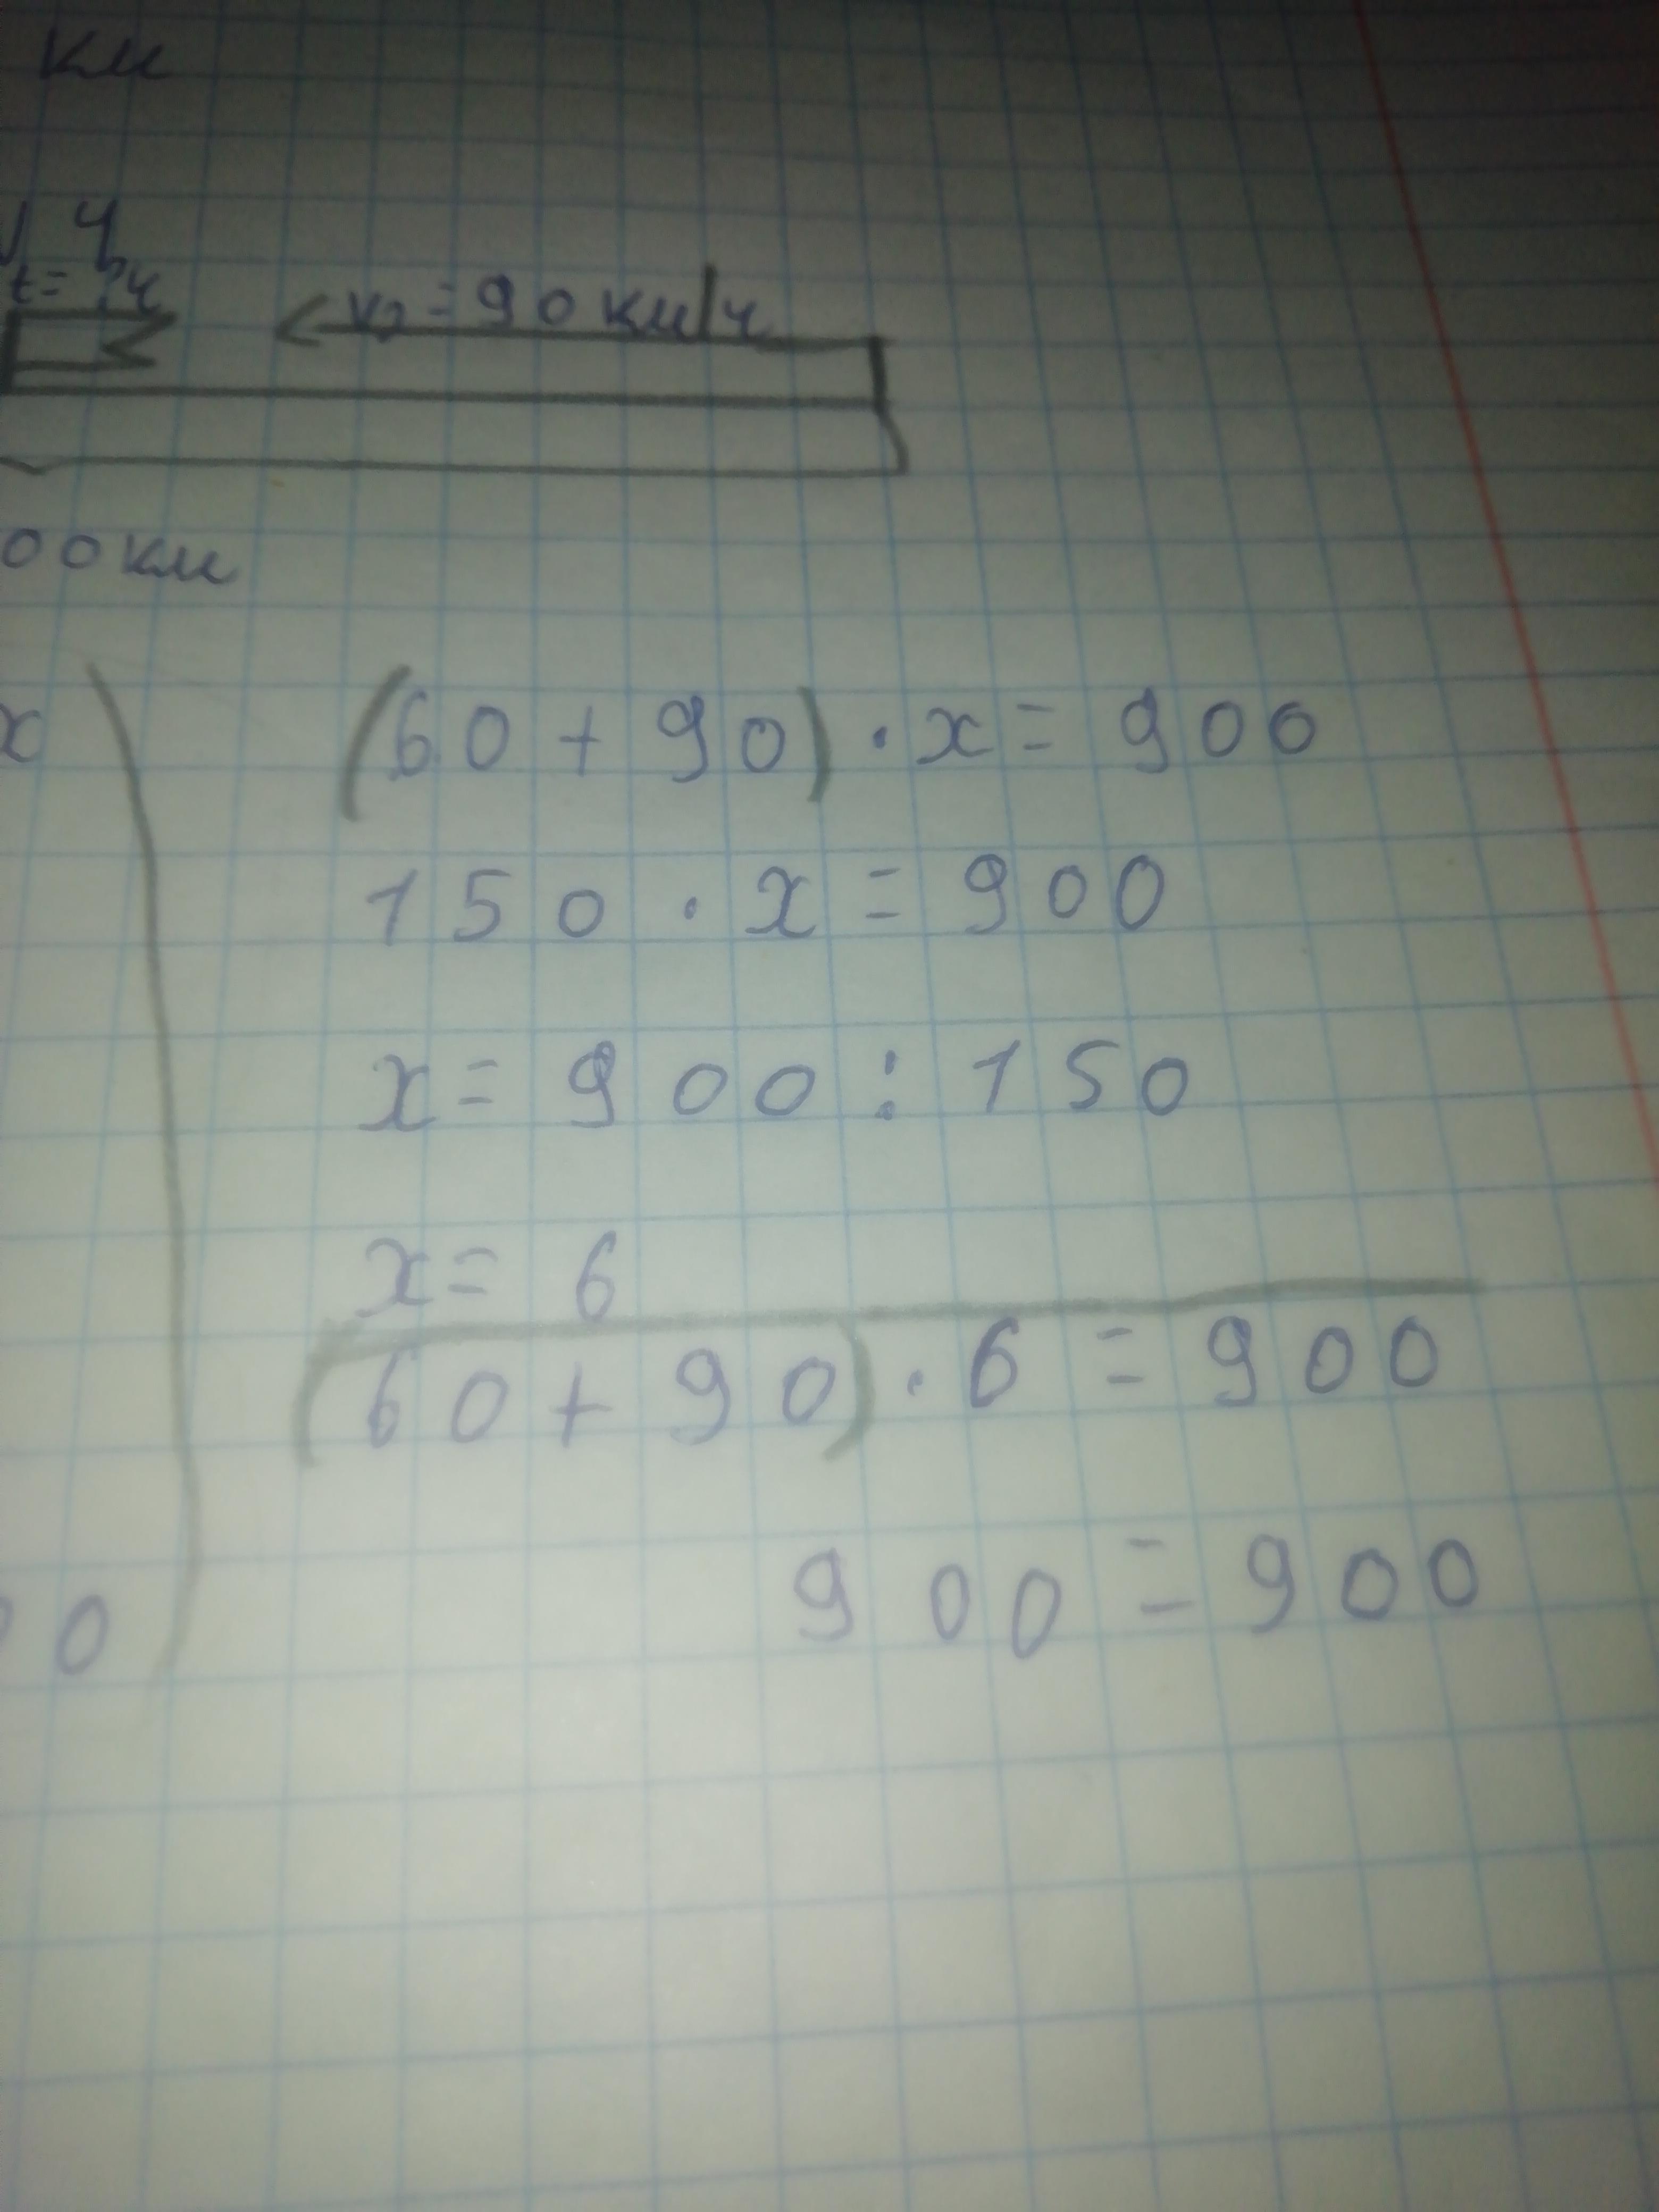 км
ч
t = ? ч
v₂ = 90 км/ч
00 км
x
(60 + 90) · x = 900
150 · x = 900
x = 900 : 150
x = 6
(60 + 90) · 6 = 900
900 = 900
0